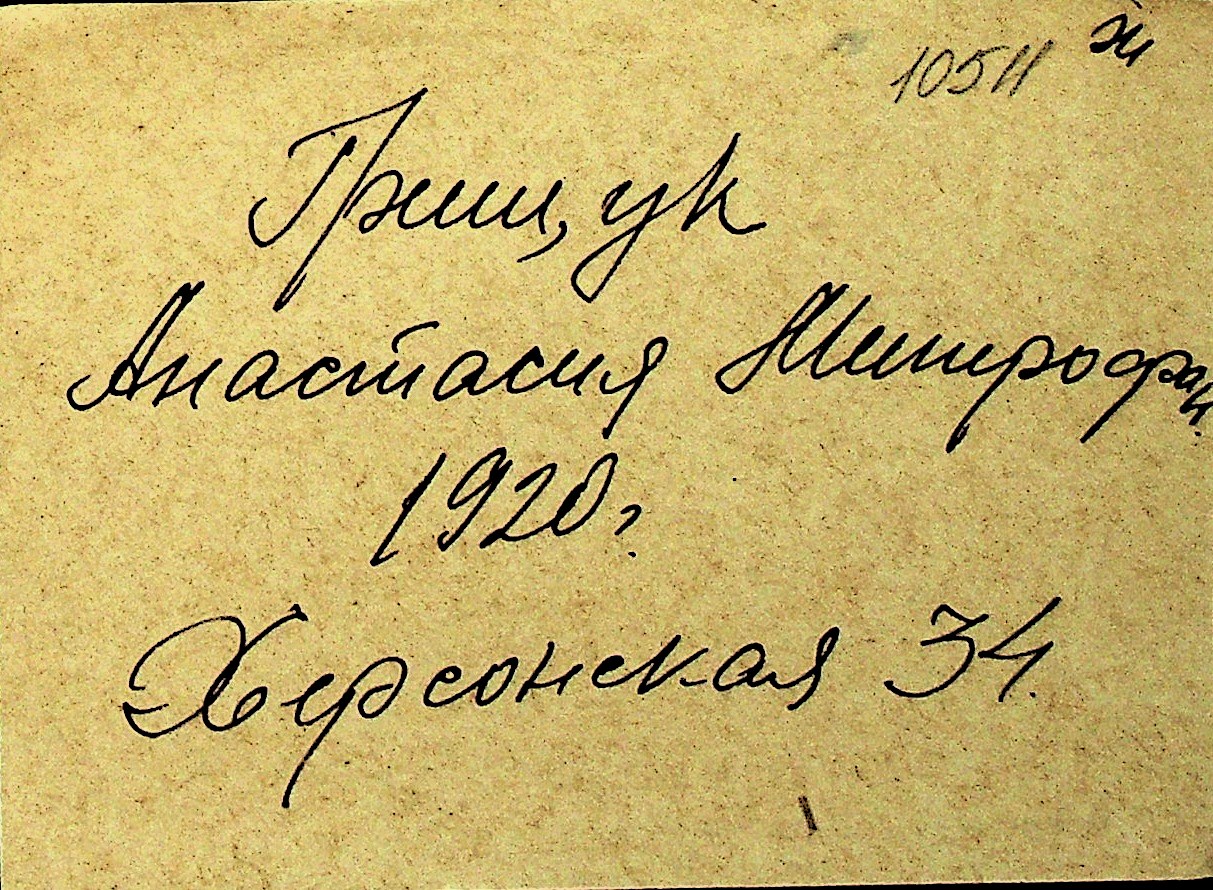 10511 ж
Грищук
Анастасия Митрофан.
1920 г.
Херсонская 34.